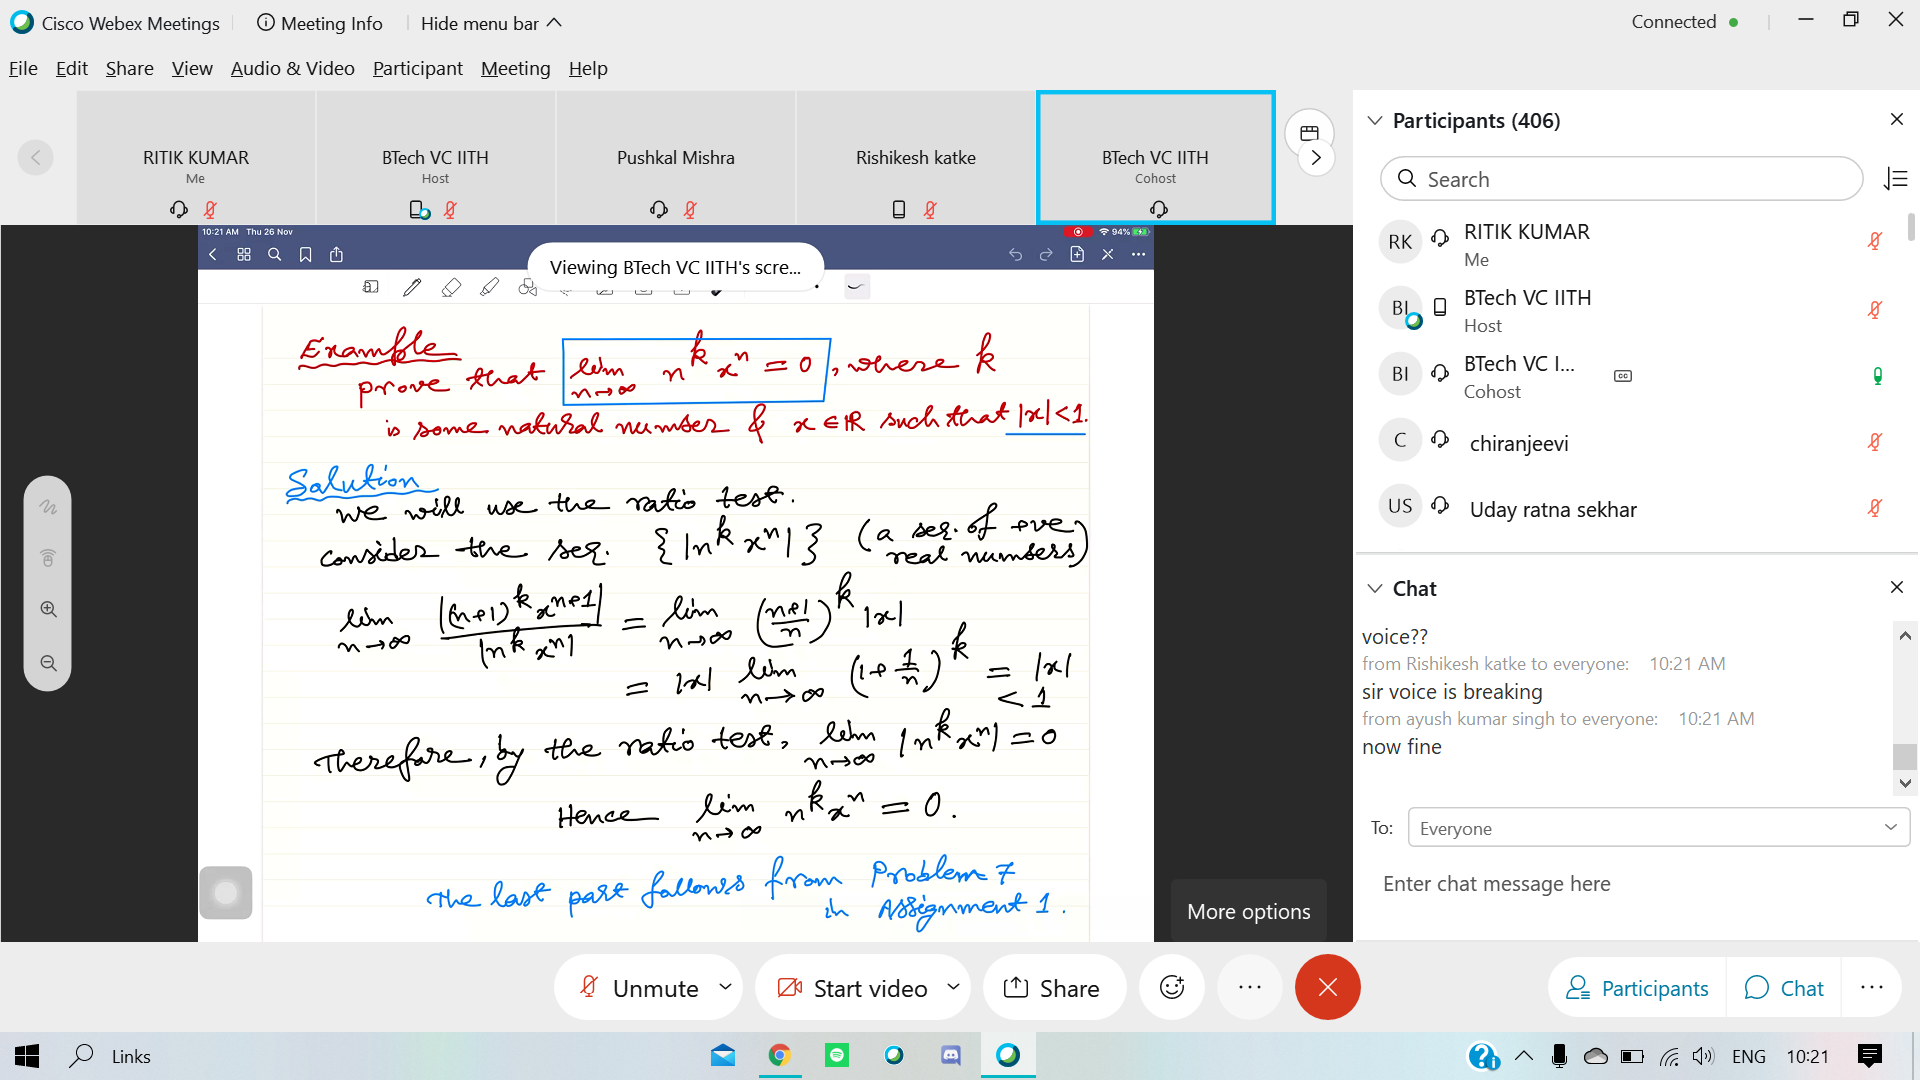 Cisco Webex Meetings
Meeting Info
Hide menu bar
Connected
File Edit Share View Audio & Video Participant Meeting Help
RITIK KUMAR
Me
BTech VC IITH
Host
Pushkal Mishra
Rishikesh katke
BTech VC IITH
Cohost
10:21 AM Thu 26 Nov
94%
Viewing BTech VC IITH's scre...
Example
prove that lim n→∞ n^k x^n = 0, where k
is some natural number & x ∈ ℝ such that |x| < 1.
Solution
we will use the ratio test.
consider the seq. { |n^k x^n| } (a seq. of +ve
real numbers)
lim n→∞ |(n+1)^k x^{n+1}| / |n^k x^n| = lim n→∞ ((n+1)/n)^k |x|
= |x| lim n→∞ (1 + 1/n)^k = |x|
< 1
Therefore, by the ratio test, lim n→∞ |n^k x^n| = 0
Hence lim n→∞ n^k x^n = 0.
The last part follows from Problem 7
in Assignment 1.
More options
Participants (406)
Search
RK RITIK KUMAR
Me
BI BTech VC IITH
Host
BI BTech VC I...
Cohost
CC
C chiranjeevi
US Uday ratna sekhar
Chat
voice??
from Rishikesh katke to everyone: 10:21 AM
sir voice is breaking
from ayush kumar singh to everyone: 10:21 AM
now fine
To: Everyone
Enter chat message here
Unmute
Start video
Share
Participants
Chat
Links
ENG
10:21